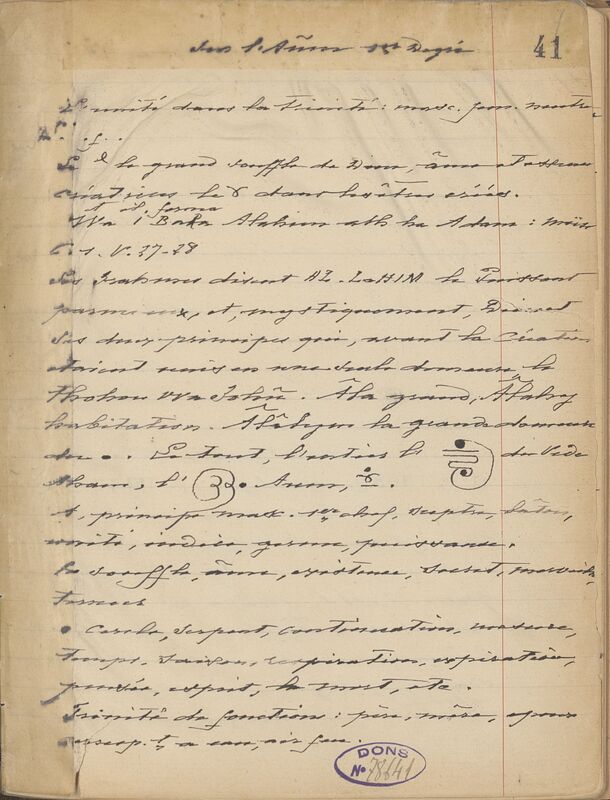 Sur l'Aûm 1er Degré
41
unité dans la trinité : masc. fem. neutre
le grand souffle de Dieu, âme et essence
créatrices le dans les êtres créés.
et il forma
Wa i Bara Alahim ath ha Adam :
C. 1. V. 27-28
Les disent AL-LeHIM le Puissant
parmi eux, et, mystiquement, Dieu et
ses deux principes qui, avant la création
étaient unis en une seule demeure le
Thohou Wa Bohû. Âla grand,
habitation. la grande demeure
du •. Le tout, l'entier le du Vide
l' Aum,
A, principe masc. 1er chef, sceptre, bâton,
unité, indice, germe, puissance.
le souffle, âme, existence, secret,
• Cercle, serpent, continuation, mesure,
temps, saison, respiration, expiration,
pensée, esprit, la mort, etc.
Trinité de fonction : père, mère, époux
à eau, air feu.
DONS
No 78641